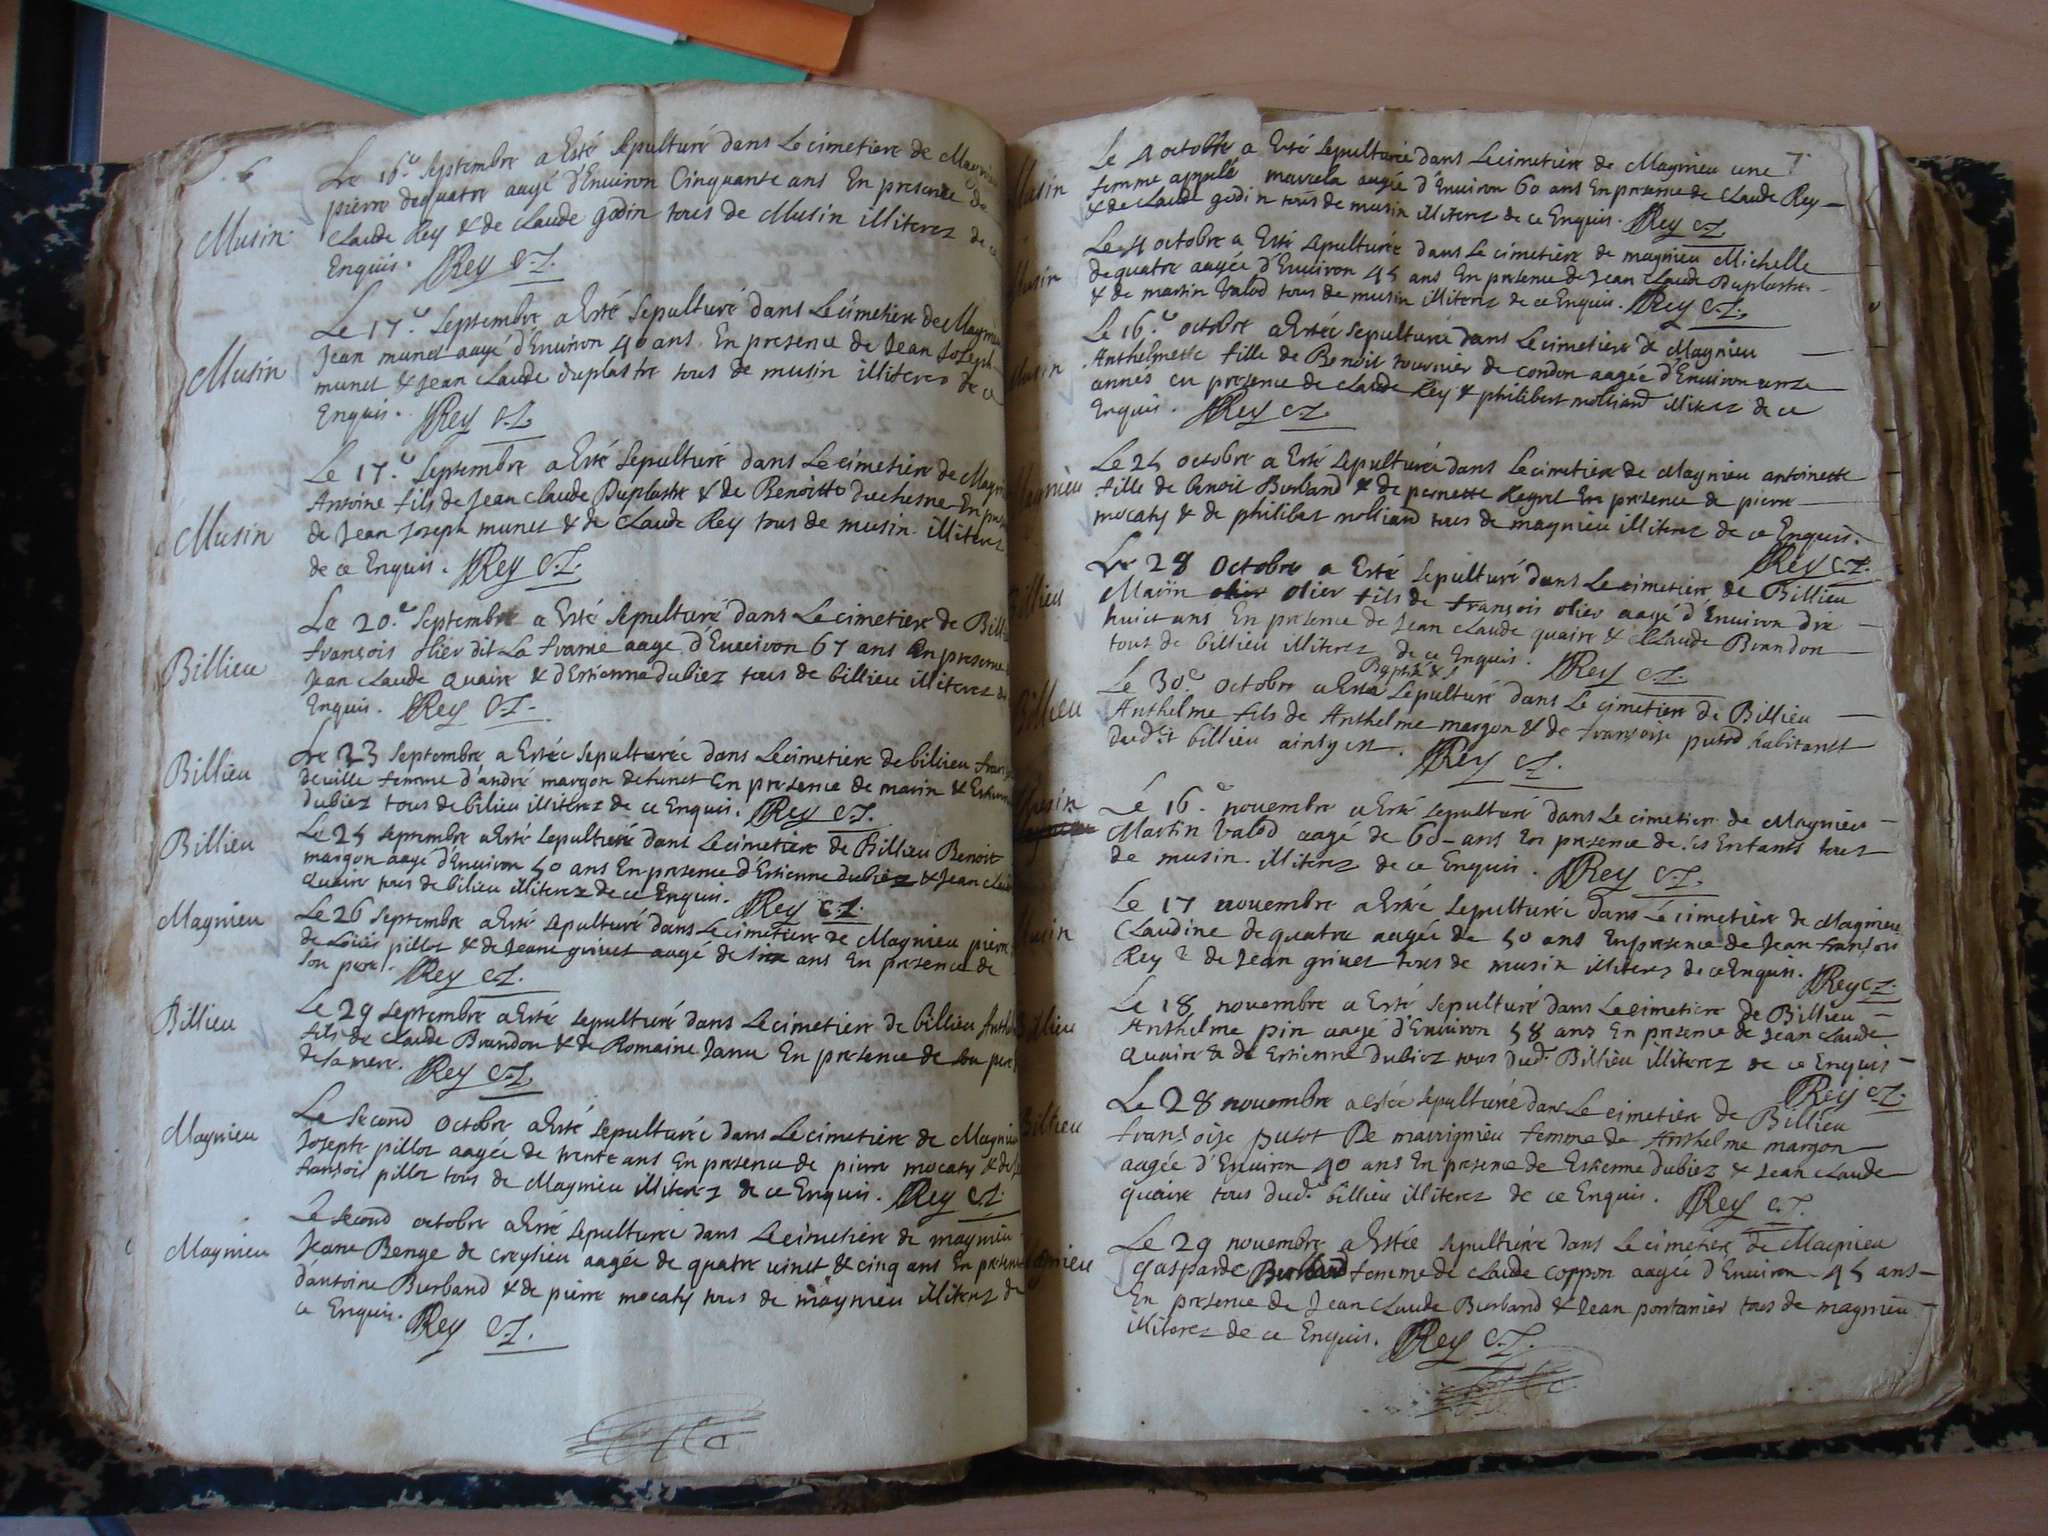 6
Le 16.e Septembre a Esté Sepulturé dans Le cimetiere de Magnieu
pierre dequatre aagé d'Environ Cinquante ans En presence de
Musin
Claude Rey & de Claude godin tous de Musin illiterez de ce
Enquis. Rey
Le 17.e Septembre a Esté Sepulturé dans Le cimetiere de Magnieu
Musin
Jean munet aagé d'Environ 40 ans En presence de Jean Joseph
munet & Jean Claude duplastre tous de musin illiterez de ce
Enquis. Rey
Le 17.e Septembre a Esté Sepulturé dans Le cimetiere de Magnieu
Musin
Antoine fils de Jean Claude Duplastre & de Benoitte duchesne En
de Jean Joseph munet & de Claude Rey tous de musin illiterez
de ce Enquis. Rey
Le 20.e Septembre a Esté Sepulturé dans Le cimetiere de
Billieu
françois olier dit La aagé d'Environ 67 ans En presence
Jean Claude quaire & d'Estienne dubiez tous de billieu illiterez de
Enquis. Rey
Billieu
Le 23 Septembre a Estée Sepulturée dans Le cimetiere de billieu
deville femme d'andré margon defunct En presence de marin & Estienne
dubiez tous de bilieu illiterez de ce Enquis. Rey
Billieu
Le 25 Septembre a Esté Sepulturé dans Le cimetiere de Billieu Benoit
margon aagé d'Environ 50 ans En presence d'Estienne dubiez & Jean
quaire tous de bilieu illiterez de ce Enquis. Rey
Magnieu
Le 26 Septembre a Esté Sepulturé dans Le cimetiere de Magnieu pierre
de Loüis pillot & de Jeane grivet aagé de ans En presence de
son pere. Rey
Billieu
Le 29 Septembre a Esté Sepulturé dans Le cimetiere de billieu
fils de Claude Brandon & de Romaine En presence de son pere
de sa mere. Rey
Magnieu
Le Second Octobre a Esté Sepulturée dans Le cimetiere de Magnieu
Josepte pillot aagée de trente ans En presence de pierre mocaty &
françois pillot tous de Magnieu illiterez de ce Enquis. Rey
Magnieu
Le Second octobre a Esté Sepulturée dans Le cimetiere de magnieu
Jeane Benge de creyzieu aagée de quatre vinct & cinq ans En presence
d'antoine Burband & de pierre mocaty tous de magnieu illiterez de
ce Enquis. Rey
7
Le 4 octobre a Esté Sepulturée dans Le cimetiere de Magnieu une
Musin
femme appelé marcela aagée d'Environ 60 ans En presence de Claude Rey
& de Claude godin tous de musin illiterez de ce Enquis. Rey
Le 4 octobre a Esté Sepulturée dans Le cimetiere de magnieu Michelle
Musin
dequatre aagée d'Environ 45 ans En presence de Jean Claude Duplastre
& de martin Valod tous de musin illiterez de ce Enquis. Rey
Le 16.e octobre a Estée Sepulturée dans Le cimetiere de Magnieu
Musin
Anthelmette fille de Benoit tournier de condon aagée d'Environ unze
années en presence de claude Rey & philibert molliard illiterez de ce
Enquis. Rey
Magnieu
Le 25 octobre a Esté Sepulturée dans Le cimetiere de Magnieu antoinette
fille de benoit Burband & de pernette Reynet En presence de pierre
mocaty & de philibet molliard tous de magnieu illiterez de ce Enquis.
Rey
Le 28 Octobre a Esté Sepulturé dans Le cimetiere de Billieu
Billieu
Marin olier fils de françois olier aagé d'Environ dix
huict ans En presence de Jean claude quaire & Claude Brandon
tous de billieu illiterez de ce Enquis. Rey
Baptisé &
Le 30.e octobre a Esté Sepulturé dans Le cimetiere de Billieu
Billieu
Anthelme fils de Anthelme margon & de françoise putod habitants
dud.t billieu ainsy est. Rey
Musin
Le 16.e novembre a Esté Sepulturé dans Le cimetiere de Magnieu
Martin Valod aagé de 60 ans En presence de ses Enfants tous
de musin illiterez de ce Enquis. Rey
Le 17 novembre a Estée Sepulturée dans Le cimetiere de Magnieu
Musin
Claudine dequatre aagée de 50 ans En presence de Jean françois
Rey & de Jean grivet tous de musin illiterez de ce Enquis. Rey
Le 18 novembre a Esté Sepulturé dans Le cimetiere de Billieu
Billieu
Anthelme pin aagé d'Environ 58 ans En presence de Jean Claude
quaire & de Estienne dubiez tous dud. Billieu illiterez de ce Enquis
Rey
Le 28 novembre a estée Sepulturée dans Le cimetiere de Billieu
Billieu
françoise putot De marignieu femme de Anthelme margon
aagée d'Environ 40 ans En presence de Estienne dubiez & Jean Claude
quaire tous dud. billieu illiterez de ce Enquis. Rey
Le 29 novembre a Estée Sepulturée dans Le cimetiere de Magnieu
Magnieu
gasparde Burband femme de claude coppon aagée d'Environ 45 ans
En presence de Jean Claude Burband & Jean pontanier tous de magnieu
illiterez de ce Enquis. Rey